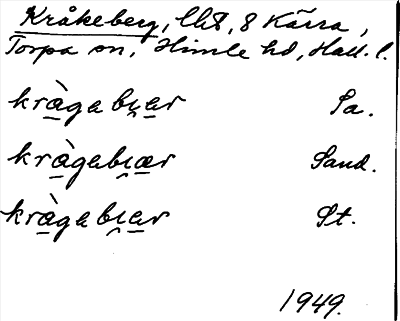 Kråkeberg, lht, 8 Kärra,
Torpa sn, Himle hd, Hall. l.
kràgabɩar Sa.
kràgabɩær Sand.
kràgabɩar St.
1949.